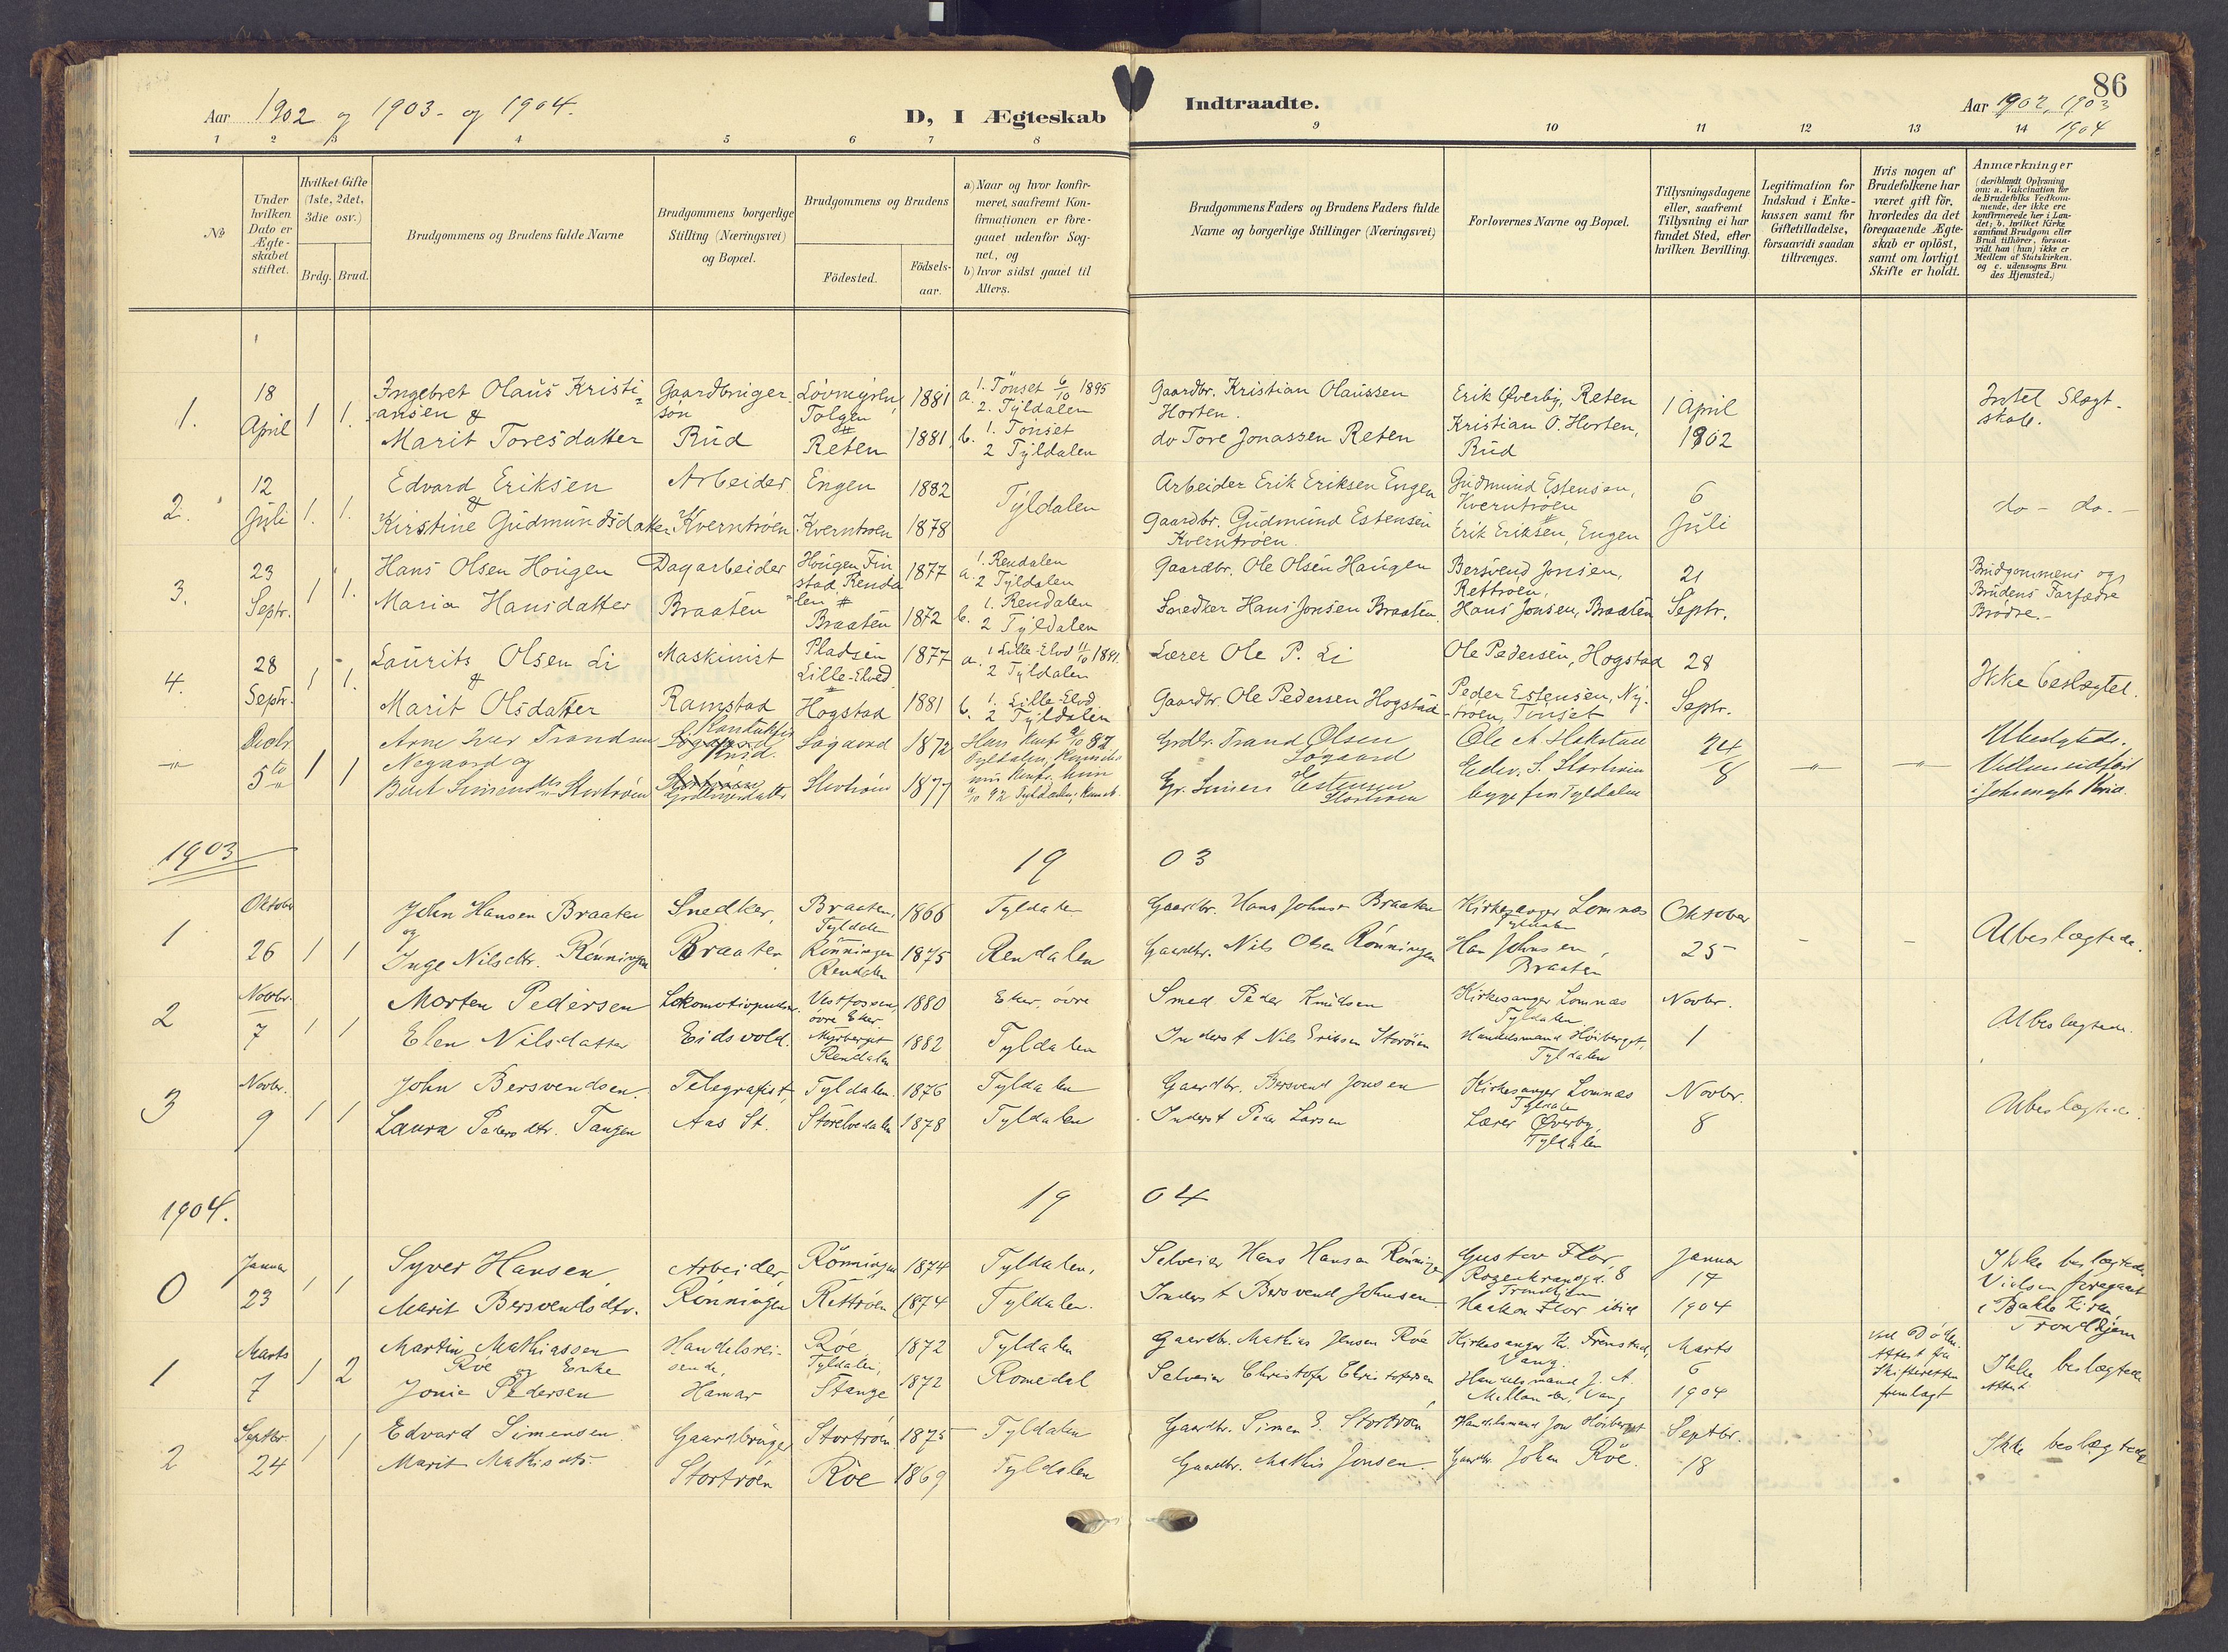 86
Aar 1902 og 1903. og 1904.
D, I Ægteskab
Indtraadte.
Aar 1902, 1903
1904
1 2 3 4 5 6 7 8 9 10 11 12 13 14
No
Under hvilken Dato er Ægteskabet stiftet.
Hvilket Gifte (1ste, 2det, 3die osv.)
Brdg. Brud.
Brudgommens og Brudens fulde Navne
Brudgommens borgerlige Stilling (Næringsvei) og Bopæl.
Brudgommens og Brudens
Födested.
Födselsaar.
a) Naar og hvor konfirmeret, saafremt Konfirmationen er foregaaet udenfor Sognet, og
b) hvor sidst gaaet til Alters.
Brudgommens Faders og Brudens Faders fulde Navne og borgerlige Stillinger (Næringsvei)
Forlovernes Navne og Bopæl.
Tillysningsdagene eller, saafremt Tillysning ei har fundet Sted, efter hvilken Bevilling.
Legitimation for Indskud i Enkekassen samt for Giftetilladelse, forsaavidt saadan tiltrænges.
Hvis nogen af Brudefolkene har været gift för, hvorledes da det foregaaende Ægteskab er oplöst, samt om lovligt Skifte er holdt.
Anmærkninger
(deriblandt Oplysning om: a. Vakcination for de Brudefolks Vedkommende, der ikke ere konfirmerede her i Landet; b. hvilket Kirkesamfund Brudgom eller Brud tilhörer, forsaavidt han (hun) ikke er Medlem af Statskirken. og c. udensogns Brudes Hjemsted.)
1. 18 April 1 1.
Ingebret Olaus Kristiansen &
Marit Toresdatter
Gaardbrugersön
Rud
Lövmyren, Tolgen
Reten
1881
1881
a. 1. Tönset 6/10 1895
2. Tyldalen
b. 1. Tönset
2 Tyldalen
Gaardbr. Kristian Olaussen Horten.
do Tore Jonassen Reten
Erik Øverby, Reten
Kristian O. Horten, Rud
1 April 1902
Intet Slægtskab.
2. 12 Juli 1. 1.
Edvard Eriksen
&
Kirstine Gudmundsdatter
Arbeider
Kverntröen
Engen
Kverntroen
1882
1878
Tyldalen
Arbeider Erik Eriksen Engen
Gaardbr. Gudmund Estensen Kverntröen.
Gudmund Estensen, Kverntröen
Erik Eriksen, Engen
6 Juli
do - do. -
3. 23 Septr. 1 1.
Hans Olsen Hougen
Maria Hansdatter
Dagarbeider
Braaten
Hougen Finstad, Rendalen
Braaten
1877
1872
a. 1. Rendalen
2 Tyldalen
b. 1. Rendalen
2 Tyldalen
Gaardbr. Ole Olsen Haugen
Snedker Hans Jonsen Braaten.
Bersvend Jonsen, Rettröen,
Hans Jonsen, Braaten
21 Septr.
Brudgommens og Brudens Farfædre Brödre.-
4. 28 Septr. 1 1.
Laurits Olsen Li
&
Marit Olsdatter
Maskinist
Ramstad
Pladsen Lille-Elved
Hogstad
1877
1881
a. 1 Lille-Elvd 11/10 1891.
2 Tyldalen
b. 1. Lille-Elvd.
2 Tyldalen
Lærer Ole P. Li
Gaardbr. Ole Pedersen Hogstad
Ole Pedersen, Hogstad
Peder Estensen, Nytröen, Tönset
28 Septr.
Ikke beslægtet.
5te 1 1
Arne Iver Trondsen
Nygaard og
Berit Simensdtr Stortröen
Søgaard
Stortröen
1872
1877
Grdbr. Trand Olsen Søgaard
Gr. Simen Estensen Stortröen
Ole A. Hakstad
Edv. S. Stortröen
begge fra Tyldalen
24/8
Ubeslægtede.
1903
1903
1 Oktober 26 1 1
John Hansen Braaten
og
Inge Nilsdtr. Rönningen
Snedker,
Braaten
Braaten, Tyldalen
Rönningen Rendalen
1866
1875
Tyldalen
Rendalen
Gaardbr. Hans Johnsen Braaten
Gaardbr. Nils Olsen Rönningen
Kirkesanger Lomnæs Tyldalen
Hans Johnsen, Braaten
Oktober 25
Ubeslægtede.
2 Novbr. 7 1 1
Morten Pedersen
Elen Nilsdatter
Lokomotivpudser.
Eidsvold.
Vestfossen, övre Eker.
Myrberget Rendalen
1880
1882
Eker, övre
Tyldalen
Smed Peder Knudsen
Inderst Nils Eriksen Storöien
Kirkesanger Lomnæs Tyldalen
Handelsmand Höiberget, Tyldalen
Novbr. 1
Ubeslægtede.
3 Novbr. 9 1 1
John Bersvendsen.
Laura Pedersdtr. Tangen
Telegrafist,
Aas St.
Tyldalen.
Storelvedalen
1876
1878
Tyldalen
Tyldalen
Gaardbr. Bersvend Jonsen
Inderst Peder Larsen
Kirkesanger Lomnæs Tyldalen
Lærer Øverby, Tyldalen
Novbr. 8
Ubeslægtede.
1904.
1904
0 Januar 23 1 1
Syver Hansen
Marit Bersvendsdtr.
Arbeider,
Rönningen
Rönningen
Rettröen
1874
1874
Tyldalen.
Tyldalen.
Selveier Hans Hansen Rönningen
Inderst Bersvend Johnsen.
Gustav Flor Rosenkransgd. 8 Trondhjem
Haakon Flor ibid
Januar 17 1904
Ikke beslægtede.
Vielsen foregaaet i Bakke Kirke, Trondhjem
1 Marts 7 1 2
Martin Mathiassen Röe
og Enke
Jonie Pedersen
Handelsreisende,
Hamar
Röe Tyldalen,
Stange
1872
1872
Tyldalen
Romedal
Gaardbr. Mathias Jensen Röe
Selveier Christofer Christofersen
Kirkesanger Kr. Frenstad, Vang.
Handelsmand J. A. Mellander, Vang
Marts 6 1904
ved Döden. Attest fra Skifteretten fremlagt
Ikke beslægtede
Attest
2 Septbr. 24 1 1
Edvard Simensen
Marit Mathisdtr.
Gaardbruger
Stortröen
Stortröen
Röe
1875
1869
Tyldalen
Tyldalen
Gaardbr. Simen E. Stortröen
Gaardbr. Mathis Jonsen.
Handelsmand Jon Höiberget
Gaardbr. Johan Röe.
Septbr. 18
Ikke beslægtede